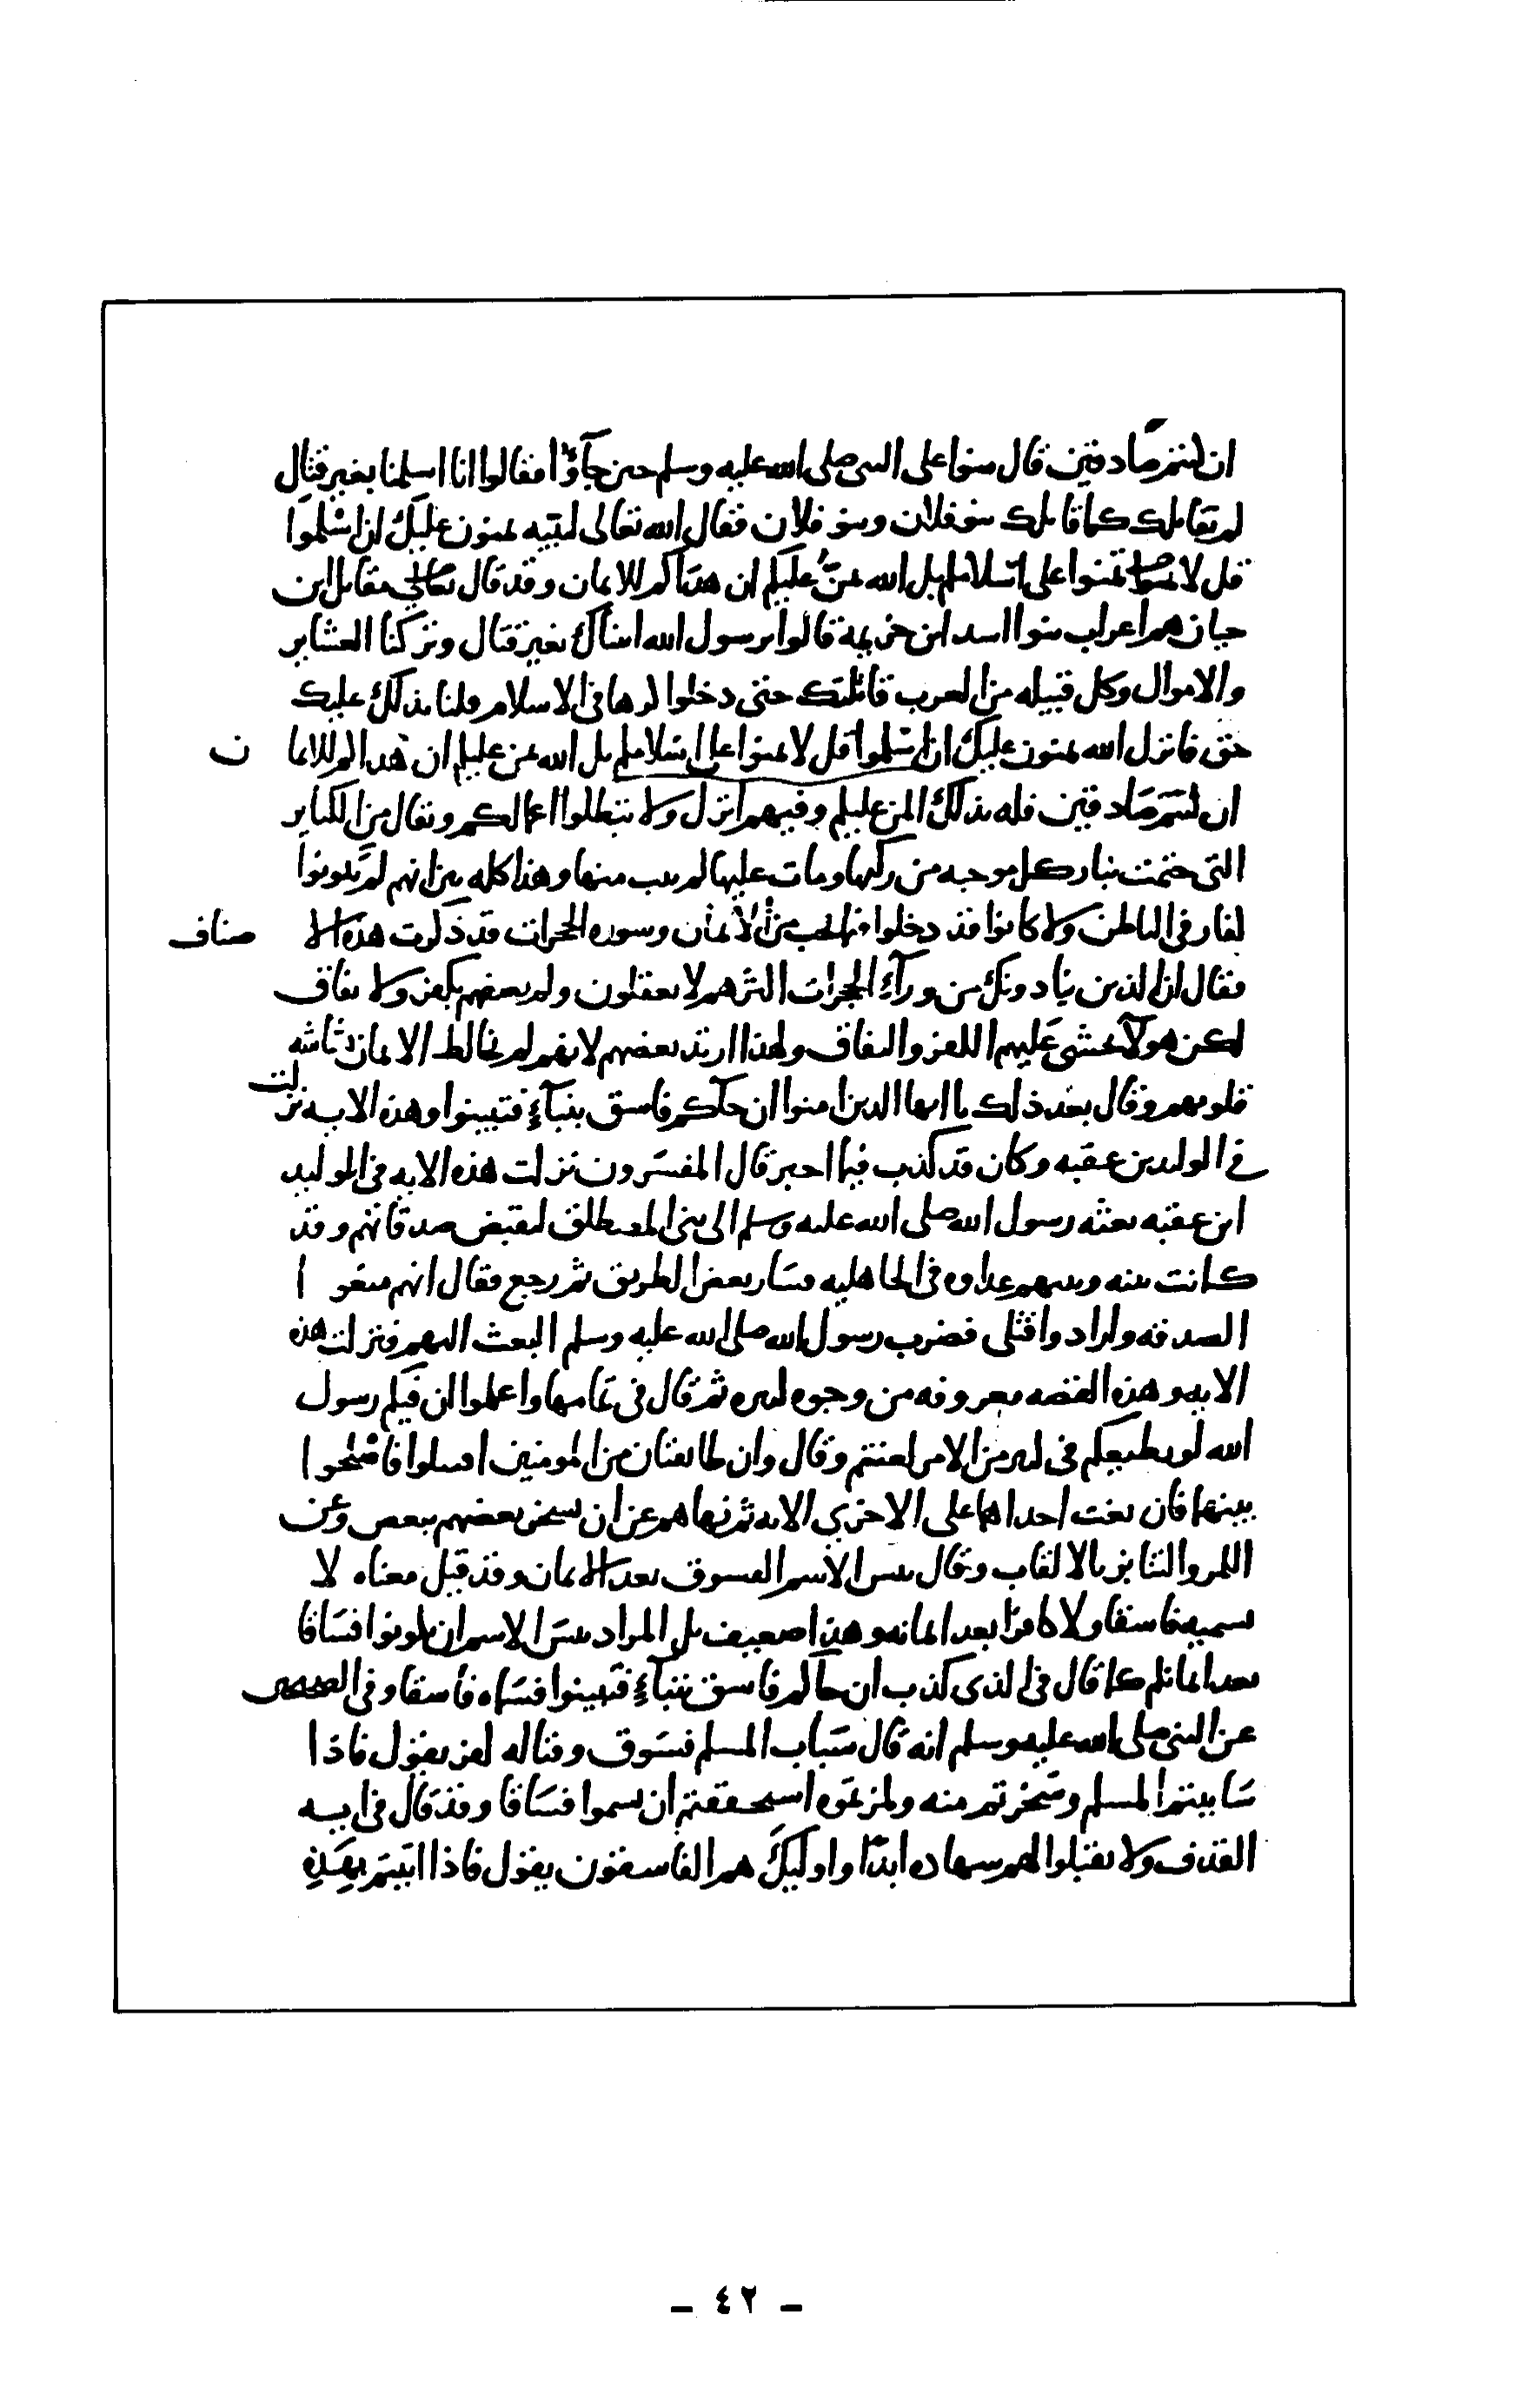 ان كنتم صادقين قال منوا على النبي صلى الله عليه وسلم حين جآوا فقالوا انا اسلمنا بغير قتال
لم نقاتلك كما قاتلك بنو فلان وبنو فلان فقال الله تعالى لنبيه يمنون عليك ان اسلموا
قل لا تمنوا على اسلامكم بل الله يمن عليكم ان هداكم للايمان وقد قال مقاتل ابن
حيان هم اعراب بنوا اسد ابن خزيمة قالوا يرسول الله اتيناك بغير قتال وتركنا العشاير
والاموال وكل قبيله من العرب قاتلتك حتى دخلوا كرها في الاسلام فلنا بذلك عليك
حق فانزل الله يمنون عليك ان اسلموا قل لا تمنوا على اسلامكم بل الله يمن عليكم ان هداكم للايما ن
ان كنتم صادقين فله بذلك المن عليكم وفيهم انزل ولا تبطلوا اعمالكم ويقال من الكباير
التي ختمت بنار كل موجبه من ركبها ومات عليها لم يتب منها وهذا كله يبين انهم لم يكونوا
كفار في الباطن ولا كانوا قد دخلوا فيما يجب من الايمان وسوره الحجرات قد ذكرت هذه الا صناف
فقال ان الذين ينادونك من ورآء الحجرات اكثرهم لا يعقلون ولم يصفهم بكفر ولا نفاق
لكن هولآ يخشى عليهم الكفر والنفاق ولهذا ارتد بعضهم لانهم لم يخالط الايمان بشاشه
قلوبهم وقال بعد ذلك يا ايها الذين امنوا ان جآكم فاسق بنبآء فتبينوا وهذه الايه نزلت
في الوليد بن عقبه وكان قد كذب فيما اخبر قال المفسرون نزلت هذه الايه في الوليد
ابن عقبه بعثه رسول الله صلى الله عليه وسلم الى بني المصطلق ليقبض صدقاتهم وقد
كانت بينه وبينهم عداوه في الجاهليه فسار بعض الطريق ثم رجع فقال انهم منعو ا
الصدقه وارادوا قتلي فضرب رسول الله صلى الله عليه وسلم البعث اليهم فنزلت هذه
الايه وهذه القصه معروفه من وجوه كثيره ثم قال في تمامها واعلموا ان فيكم رسول
الله لو يطيعكم في كثير من الامر لعنتم وقال وان طايفتان من المومنين اقتتلوا فاصلحوا
بينهما فان بغت احداهما على الاخرى الايه ثم نهاهم عن ان يسخر بعضهم ببعض وعن
اللمز والتنابز بالالقاب وقال بئس الاسم الفسوق بعد الايمان وقد قيل معناه لا
تسميه فاسقا ولا كافرا بعد ايمانه وهذا ضعيف بل المراد بئس الاسم ان يكونوا فساقا
بعد ايمانكم كما قال في الذي كذب ان جآكم فاسق بنبآء فتبينوا فسماه فاسقا وفي الصحيحين
عن النبي صلى الله عليه وسلم انه قال سباب المسلم فسوق وقتاله كفر يقول فاذا
سابيتم المسلم وسخرتم منه ولمزتموه استحققتم ان تسموا فساقا وقد قال في ايه
القذف ولا تقبلوا لهم شهاده ابدا واوليك هم الفاسقون يقول فاذا اتيتم بهذه
- ٤٢ -